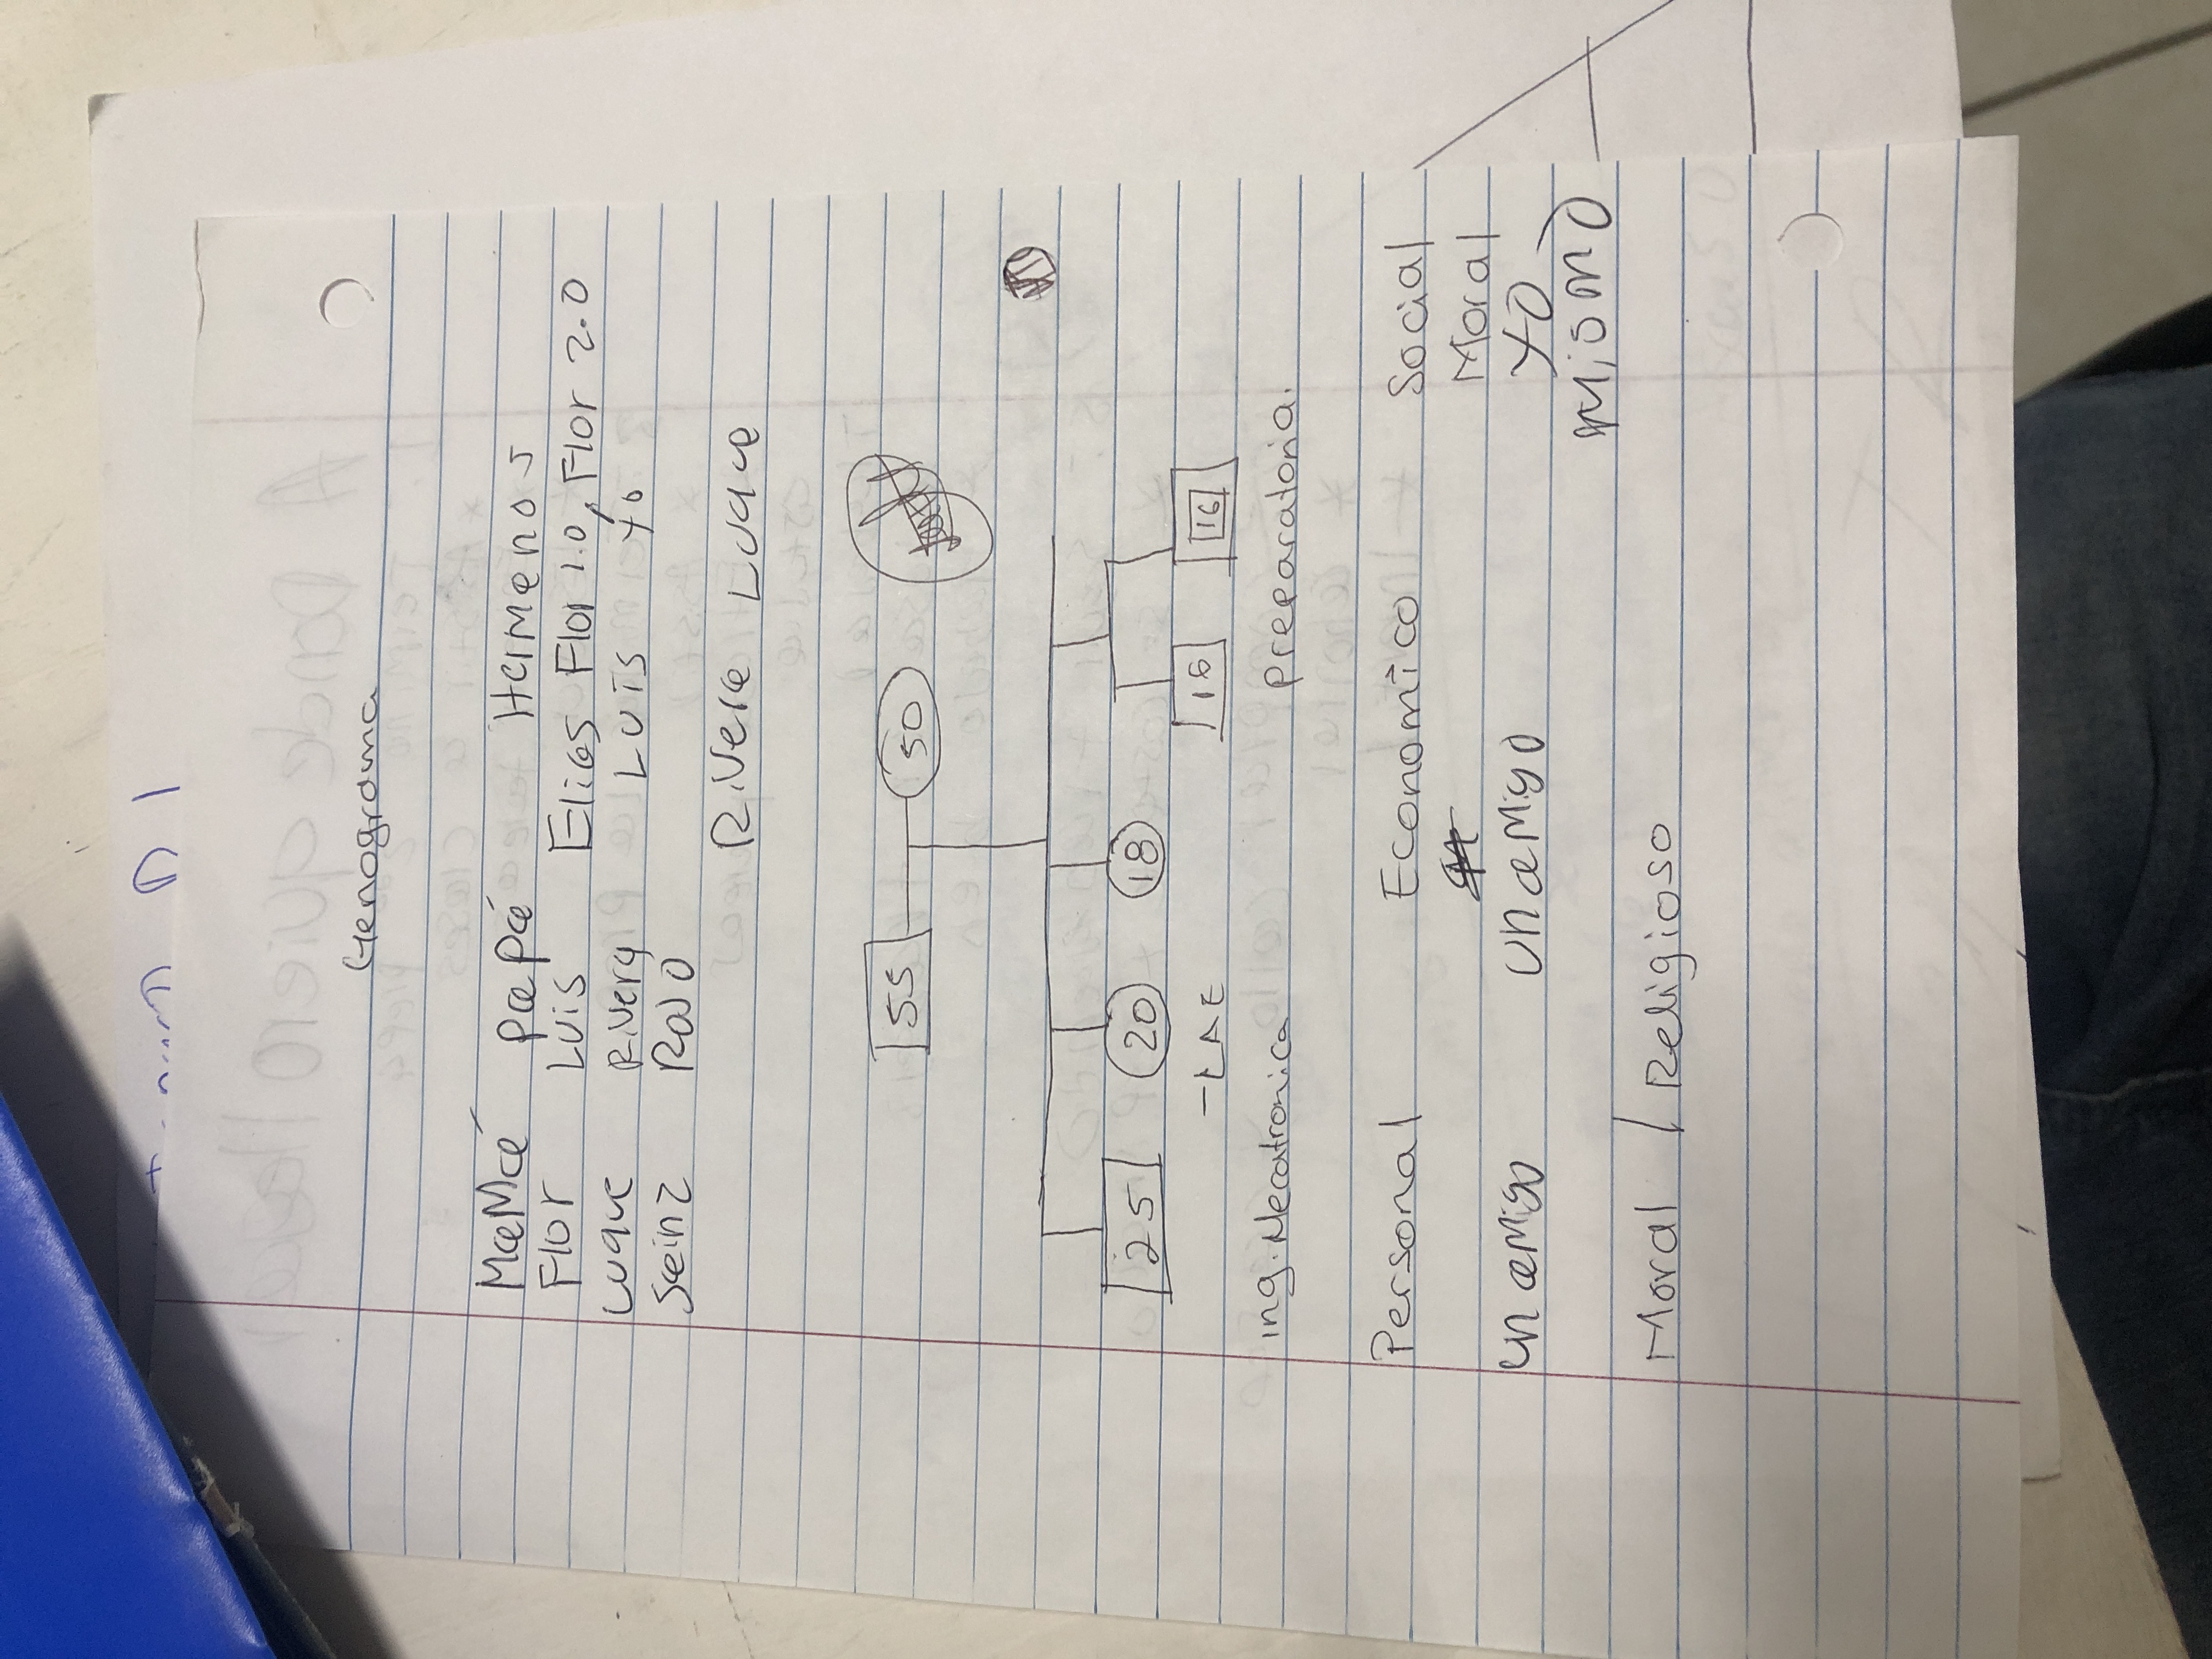 Genograma
Mamá papá Hermenos
Flor Luis Elias Flor 1.0, Flor 2.0
Luque Rivera Luis yo
Rivera Luque
55 50
25 20 18 16 16
-LAE
ing. Mecatronica preparatoria.
Personal Economico Social
Moral
un amigo un amigo yo
mismo
Moral / Religioso